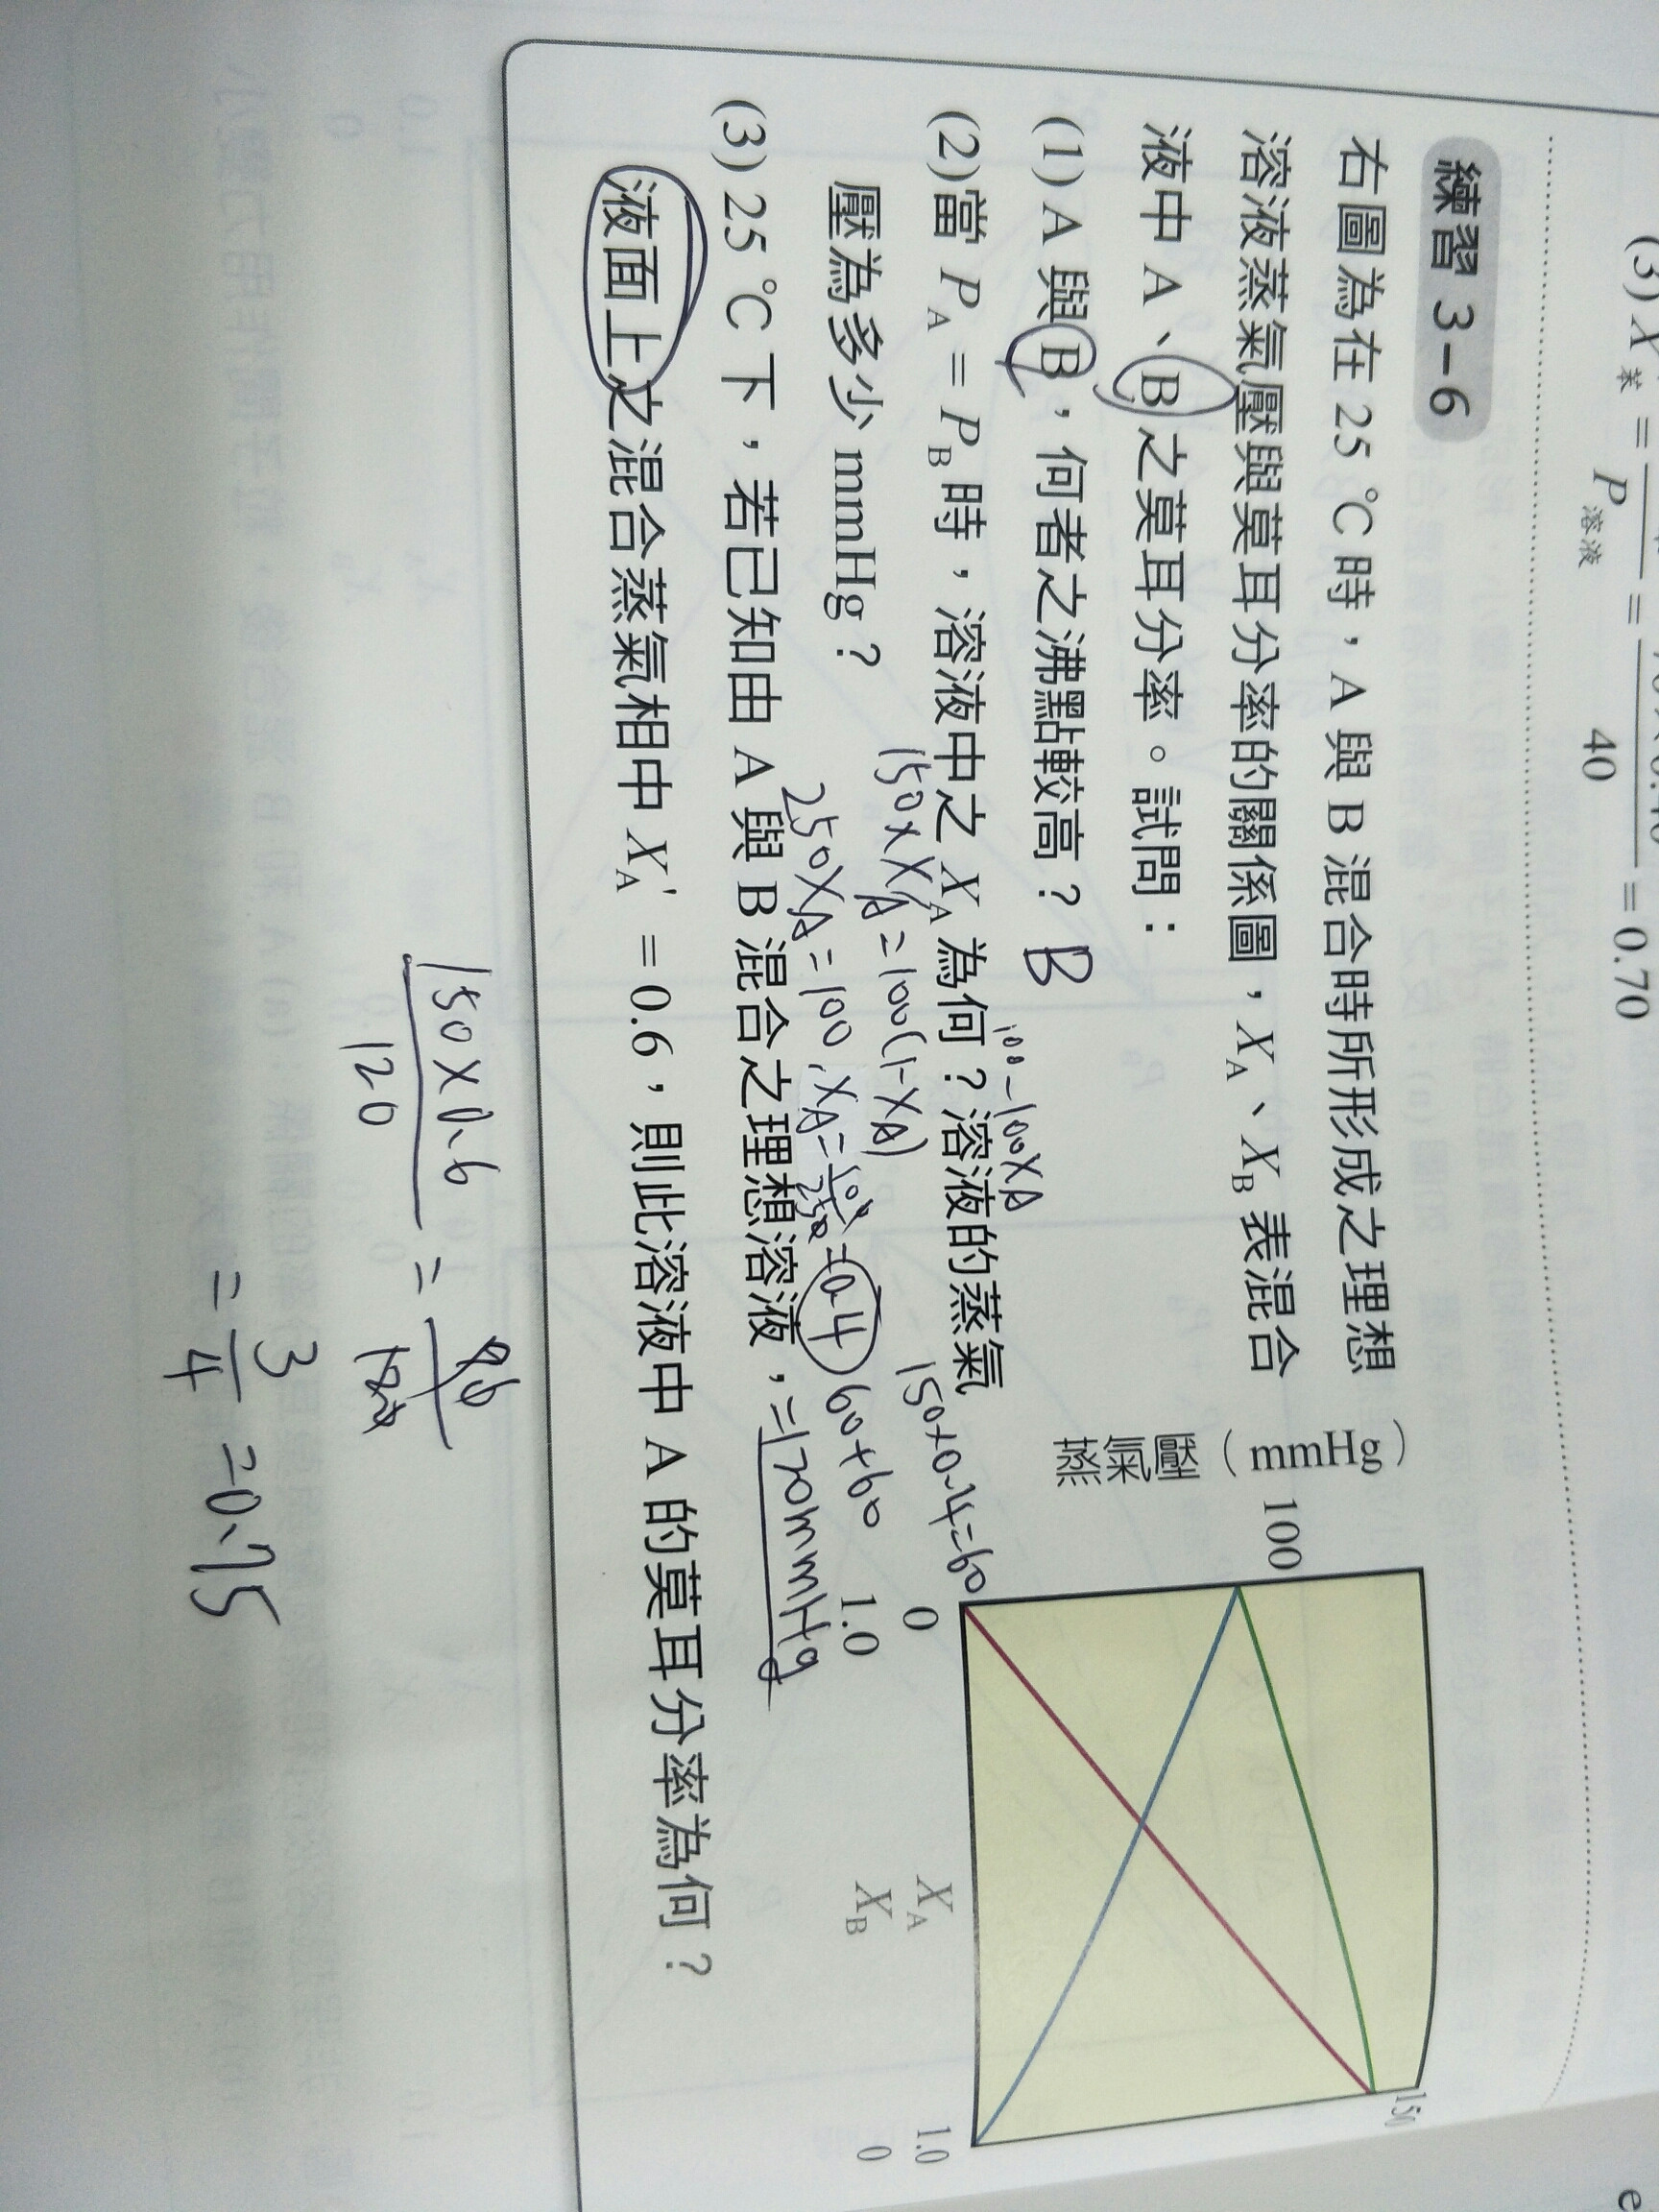 (3) X苯 = P溶液 = 40 = 0.70
練習 3-6
右圖為在 25 ℃ 時，A 與 B 混合時所形成之理想
溶液蒸氣壓與莫耳分率的關係圖，XA、XB 表混合
液中 A、B 之莫耳分率。試問：
(1) A 與 B，何者之沸點較高？ B
100-100XA
(2)當 PA = PB 時，溶液中之 XA 為何？溶液的蒸氣
壓為多少 mmHg？
150×XA=100(1-XA)
150×0.4=60
250XA=100, XA=100/250=0.4
60+60
=120mmHg
(3) 25 ℃ 下，若已知由 A 與 B 混合之理想溶液，
液面上之混合蒸氣相中 XA' = 0.6，則此溶液中 A 的莫耳分率為何？
150×0.6
120
=
=3/4 =0.75
蒸氣壓（mmHg）
150
100
0 XA 1.0
1.0 XB 0